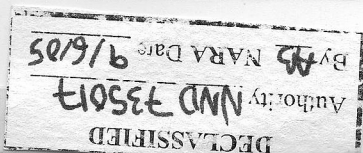 DECLASSIFIED
Authority NND 735017
By AB NARA Date 9/6/05